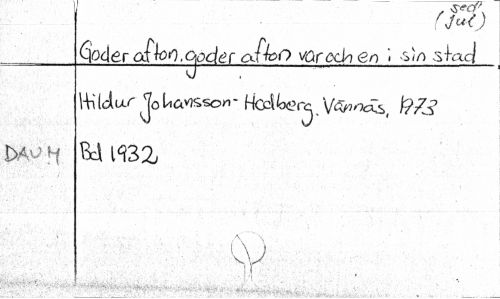 sed
(Jul)
Goder afton, goder afton var och en i sin stad
Hildur Johansson-Hedberg, Vännäs, 1973
DAUM Bd 1932